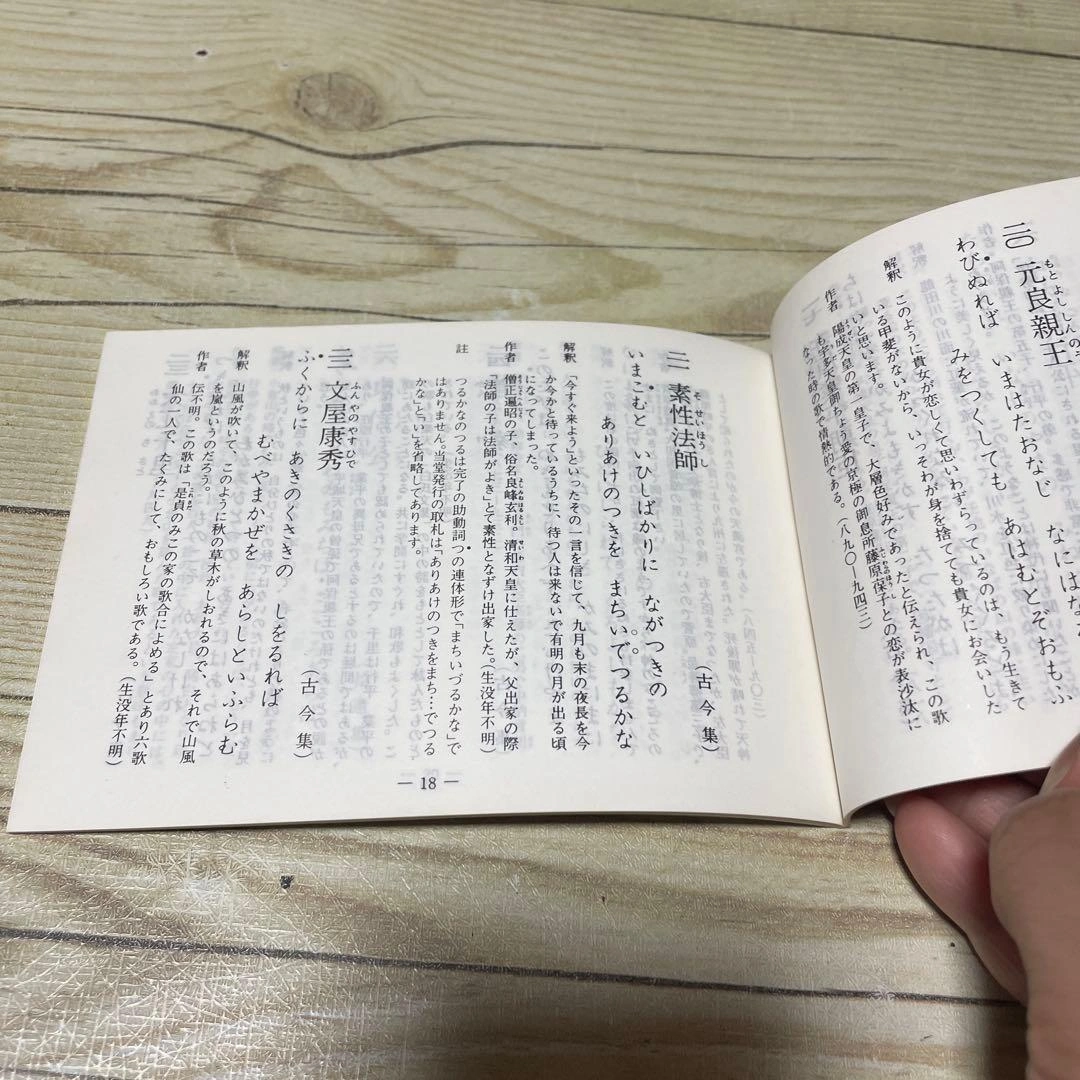 二〇 元良親王
わびぬれば いまはたおなじ なにはな
みをつくしても あはむとぞおもふ
解釈 このように貴女が恋しくて思いわずらっているのは、もう生きて
いる甲斐がないから、いっそわが身を捨てても貴女にお会いした
いと思います。
作者 陽成天皇の第一皇子で、大層色好みであったと伝えられ、この歌
も宇多天皇御ちょう愛の京極の御息所藤原葆子との恋が表沙汰に
なった時の歌で情熱的である。(八九〇—九四三)
二一 素性法師
いまこむと いひしばかりに ながつきの
ありあけのつきを まちいでつるかな
(古今集)
解釈 「今すぐ来よう」といったその一言を信じて、九月も末の夜長を今
か今かと待っているうちに、待つ人は来ないで有明の月が出る頃
になってしまった。
作者 僧正遍昭の子、俗名良峰玄利。清和天皇に仕えたが、父出家の際
「法師の子は法師がよき」とて素性となずけ出家した。(生没年不明)
註 つるかなのつるは完了の助動詞つの連体形で「まちいづるかな」で
はありません。当堂発行の取札は「ありあけのつきをまち…でつる
かな」と「い」を省略してあります。
二二 文屋康秀
ふくからに あきのくさきの しをるれば
むべやまかぜを あらしといふらむ
(古今集)
解釈 山風が吹いて、このように秋の草木がしおれるので、それで山風
を嵐というのだろう。
作者 伝不明。この歌は「是貞のみこの家の歌合によめる」とあり六歌
仙の一人で、たくみにして、おもしろい歌である。(生没年不明)
— 18 —